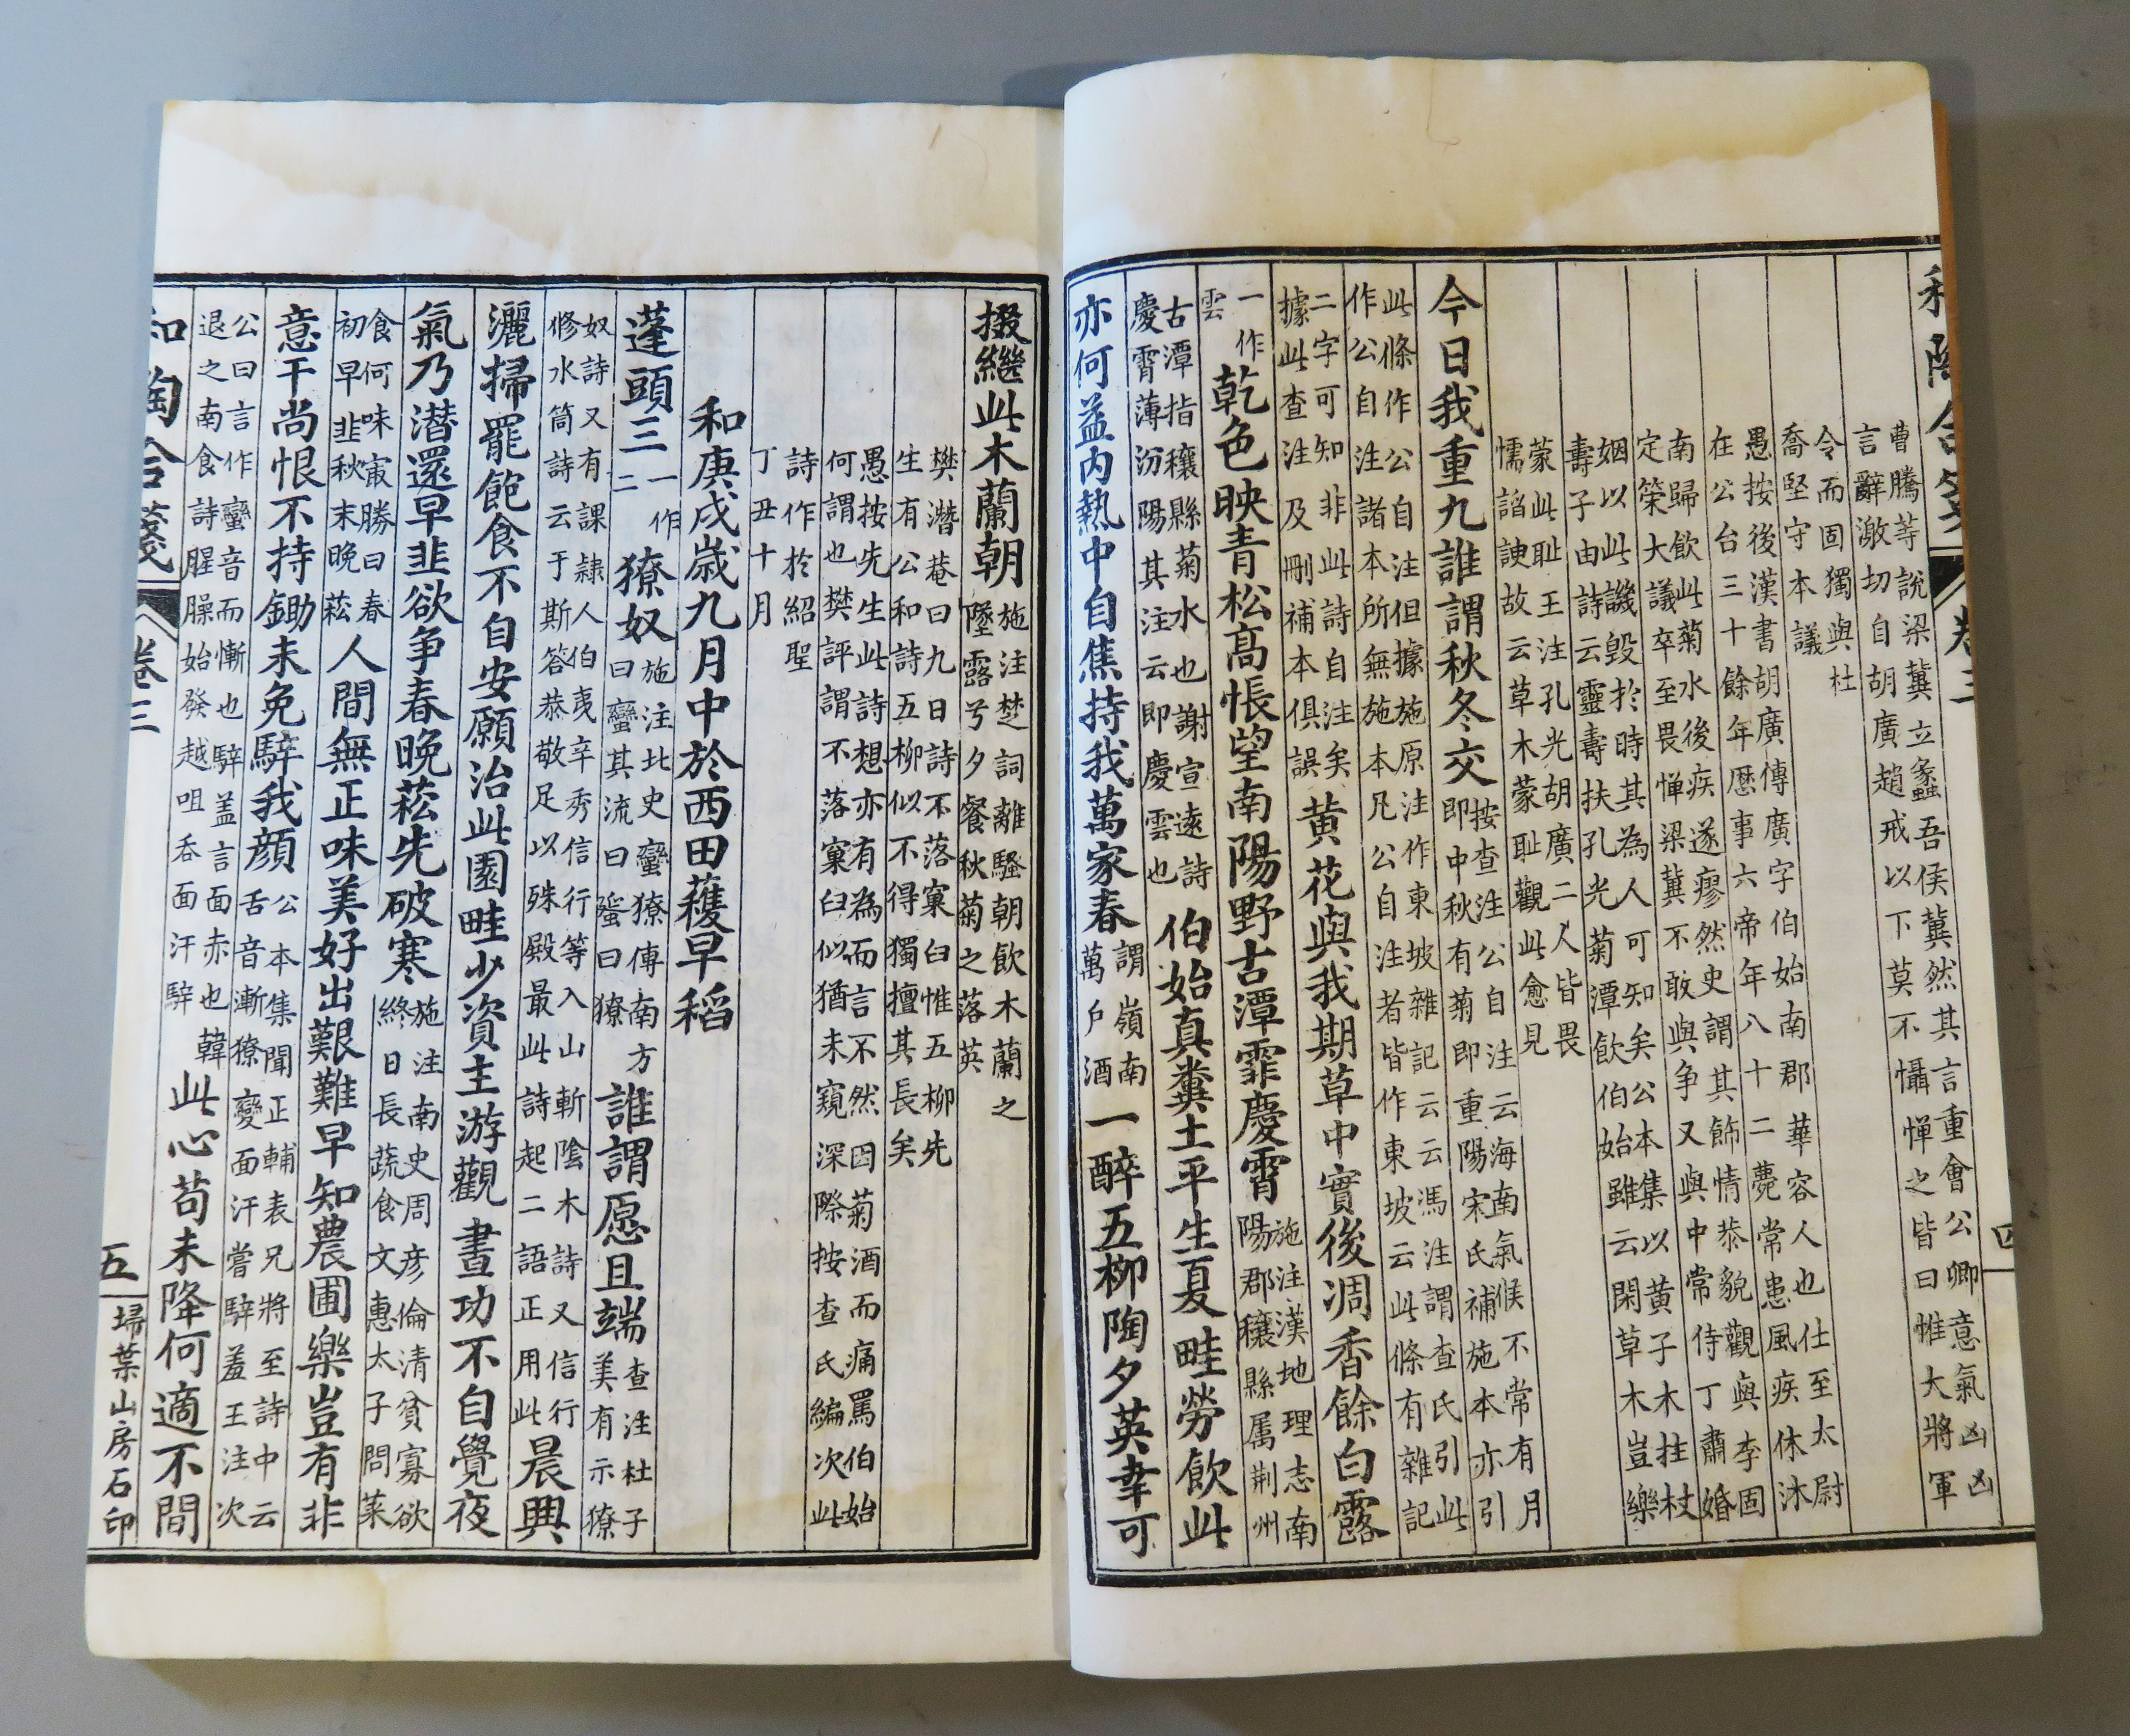 曹騰等說梁冀立蠡吾侯冀然其言重會公卿意氣凶凶
言辭激切自胡廣趙戒以下莫不懾憚之皆曰惟大將軍
令而固獨與杜
喬堅守本議
愚按後漢書胡廣傳廣字伯始南郡華容人也仕至太尉
在公台三十餘年歷事六帝年八十二薨常患風疾休沐
南歸飲此菊水後疾遂瘳然史謂其飾情恭貌觀與李固
定策大議卒至畏憚梁冀不敢與争又與中常侍丁肅婚
姻以此譏毀於時其為人可知矣公本集以黃子木拄杖
壽子由詩云靈壽扶孔光菊潭飲伯始雖云閑草木豈樂
蒙此恥王注孔光胡廣二人皆畏
懦諂諛故云草木蒙恥觀此愈見
今日我重九誰謂秋冬交
按查注公自注云海南氣候不常有月
即中秋有菊即重陽宋氏補施本亦引
此條作公自注但據施原注作東坡雜記云云馮注謂查氏引此
作公自注諸本所無施本凡公自注者皆作東坡云此條有雜記
二字可知非此詩自注矣
據此查注及刪補本俱誤
黃花與我期草中實後凋香餘白露
一作
雲
乾色映青松高悵望南陽野古潭霏慶霄
施注漢地理志南
陽郡穰縣属荆州
古潭指穰縣菊水也謝宣遠詩
慶霄薄汾陽其注云即慶雲也
伯始真糞土平生夏畦勞飲此
亦何益内熱中自焦持我萬家春
謂嶺南
萬戶酒
一醉五柳陶夕英幸可
掇繼此木蘭朝
施注楚詞離騷朝飲木蘭之
墜露兮夕餐秋菊之落英
樊潛菴曰九日詩不落窠臼惟五柳先
生有公和詩五柳似不得獨擅其長矣
愚按先生此詩想亦有為而言不然因菊酒而痛罵伯始
何謂也樊評謂不落窠臼似猶未窺深際按查氏編次此
詩作於紹聖
丁丑十月
和庚戌歲九月中於西田穫早稻
蓬頭三
一作
二
獠奴
施注北史蠻獠傳南方
曰蠻其流曰蜑曰獠
誰謂愿且端
查注杜子
美有示獠
奴詩又有課隸人伯夷辛秀信行等入山斬陰木詩又信行
修水筒詩云于斯答恭敬足以殊殿最此詩起二語正用此
晨興
灑掃罷飽食不自安願治此園畦少資主游觀晝功不自覺夜
氣乃潛還早韭欲争春晚菘先破寒
施注南史周彦倫清貧寡欲
終日長蔬食文惠太子問菜
食何味㝡勝曰春
初早韭秋末晚菘
人間無正味美好出艱難早知農圃樂豈有非
意干尚恨不持鋤未免騂我顏
公本集聞正輔表兄將至詩中云
舌音漸獠變面汗嘗騂羞王注次
公曰言作蠻音而慚也騂盖言面面赤也韓
退之南食詩腥臊始發越咀吞面汗騂
此心苟未降何適不間
和陶合箋
卷三
五
掃葉山房石印